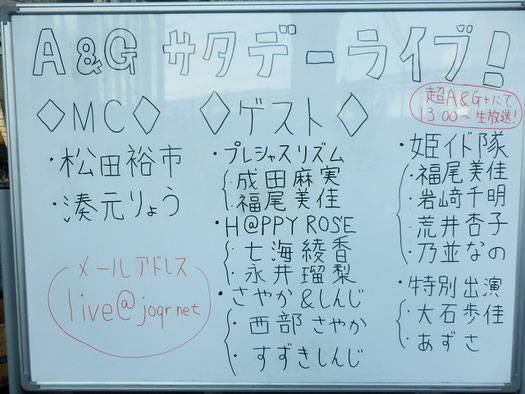 A&G サタデーライブ!
◇MC◇
・松田裕市
・湊元りょう
メールアドレス
live@joqr.net
◇ゲスト◇
・プレシャスリズム
・成田麻実
・福尾美佳
・H@PPY ROSE
・七海綾香
・永井瑠梨
・さやか&しんじ
・西部さやか
・すずきしんじ
超A&G+にて
13:00~生放送!
・姫イド隊
・福尾美佳
・岩崎千明
・荒井杏子
・乃並なの
・特別出演
・大石歩佳
・あずさ